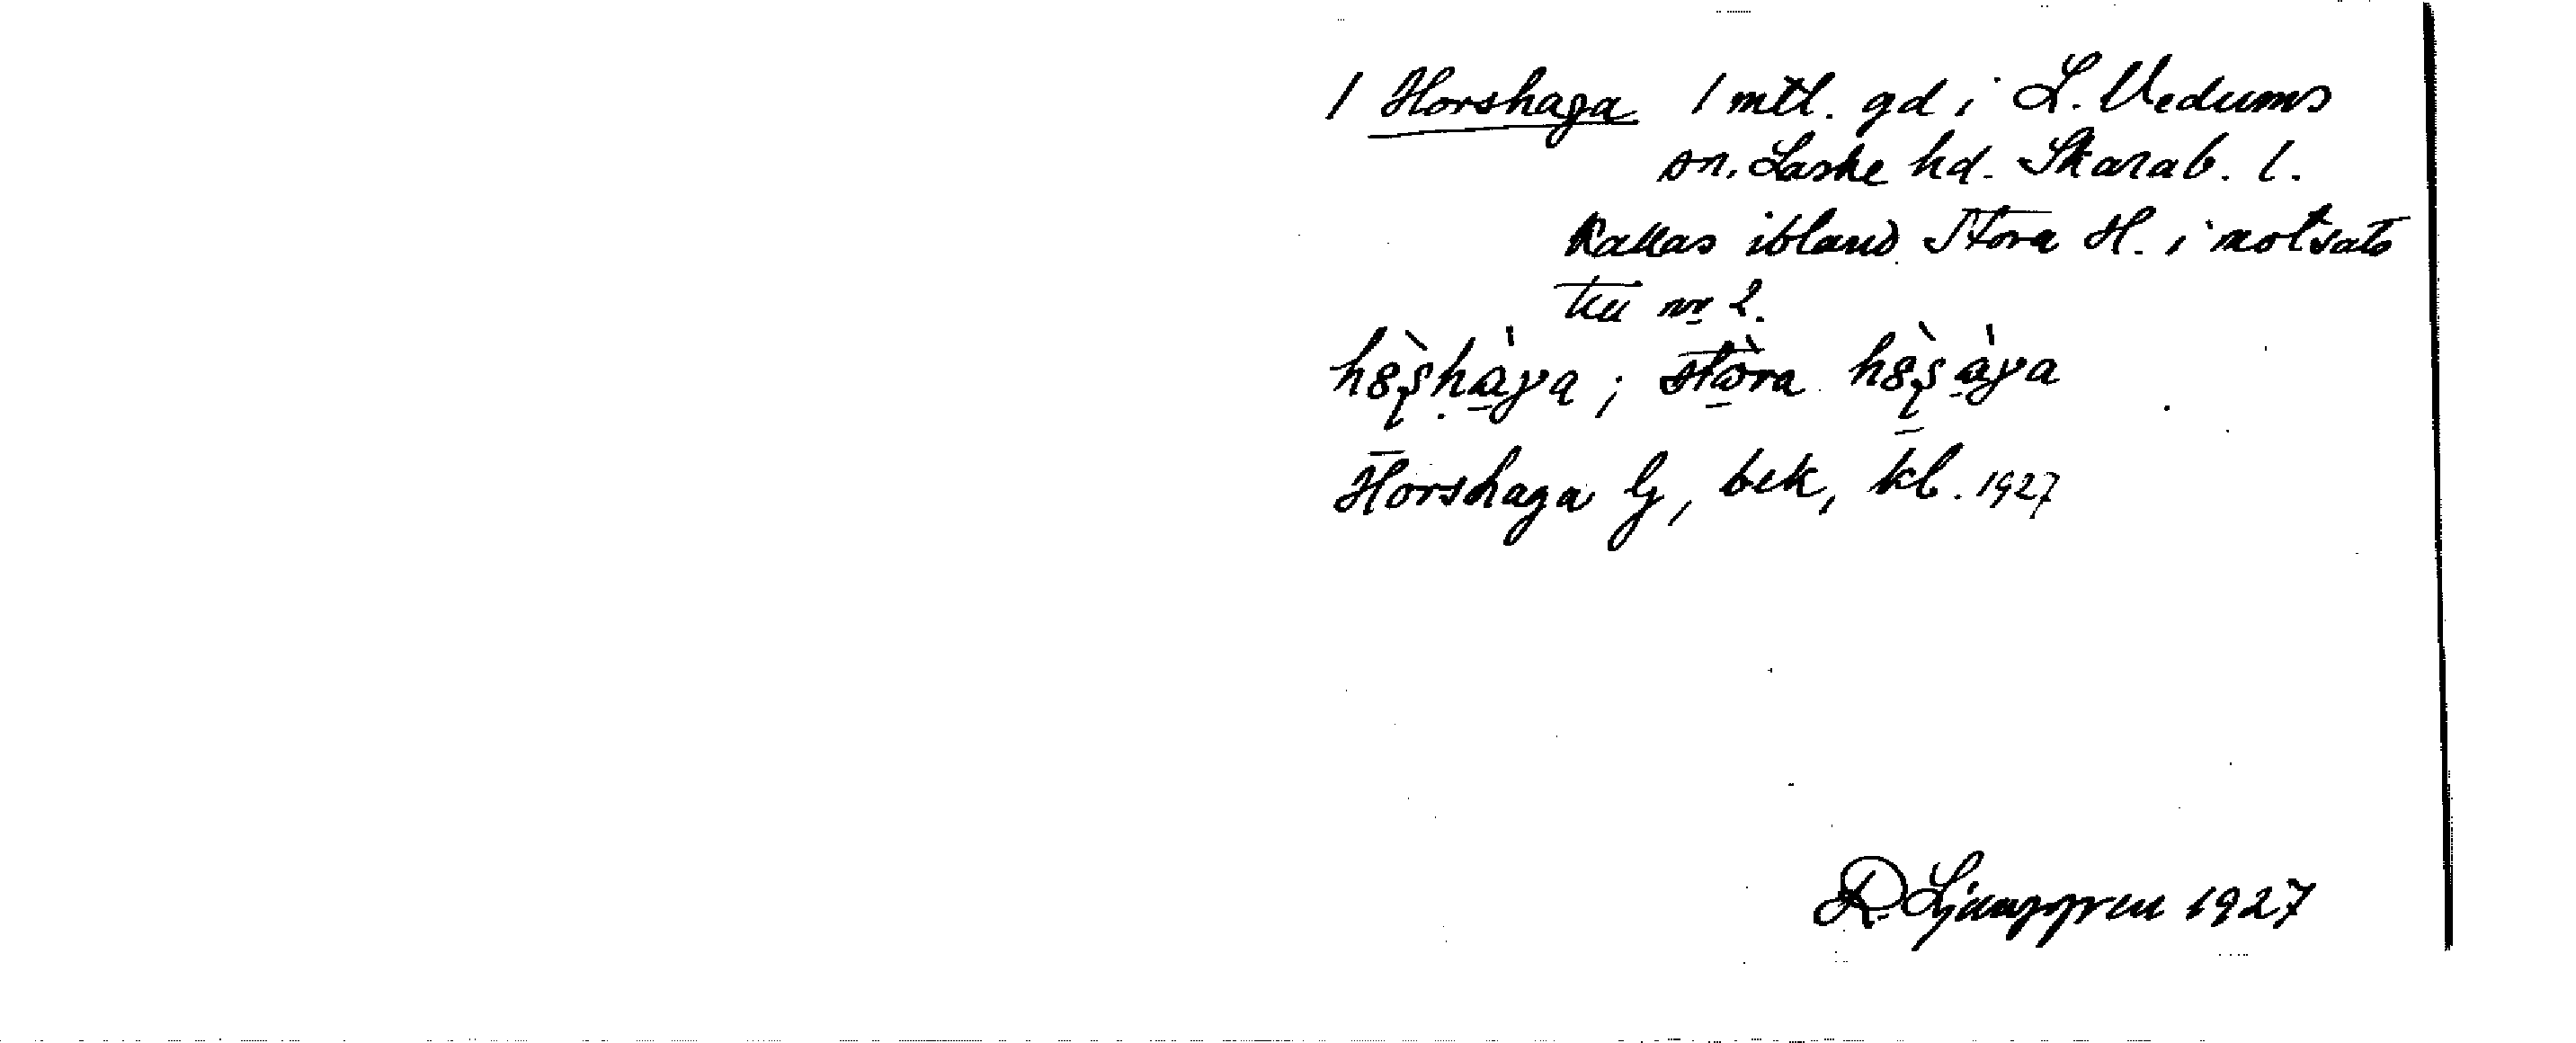 1 Horshaga 1 mtl. gd i L. Vedums
sn. Laske hd. Skarab. l.
Kallas ibland Stora H. i motsats
till nr 2.
hȣ̀ʂhàγa; stòra hȣ̀ʂàγa
Horshaga G, bek, kb. 1927
R. Ljunggren 1927